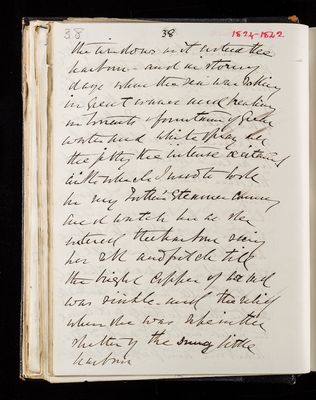 38 38 1824-1842
the windows and watched the
harbour - and in stormy
days when the sea was
in great waves and breaking
in torrents & fountains of green
water and white spray
the jetty the intense
with which I used to look
for my Father's Steamer coming
and watch her as she
entered the harbour
her roll and pitch till
the bright copper of
was visible - and the relief
when she was safe in the
shelter of the snug little
harbour